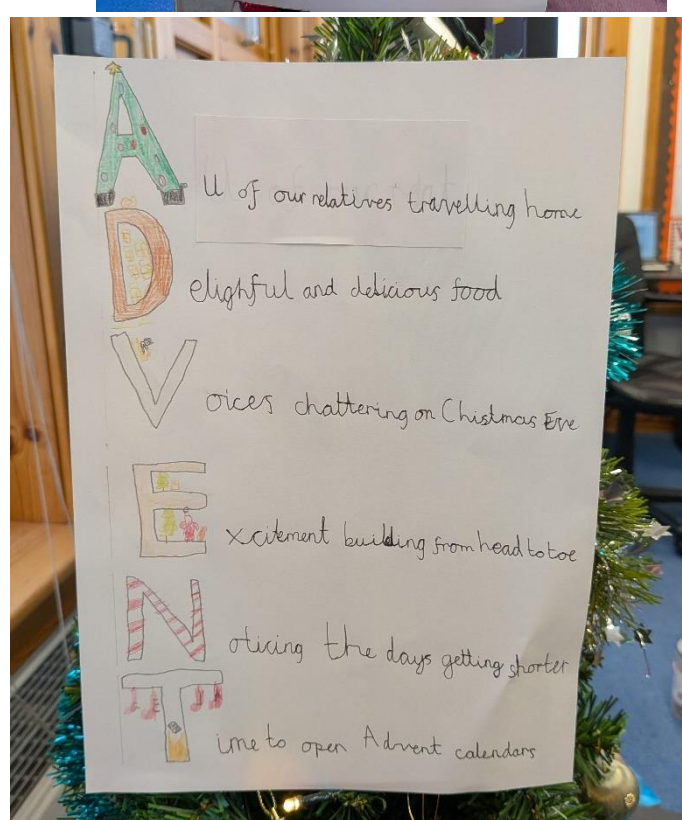 All of our relatives travelling home
Delighful and delicious food
Voices chattering on Chistmas Eve
Excitement building from head to toe
Noticing the days getting shorter
Time to open Advent calendars